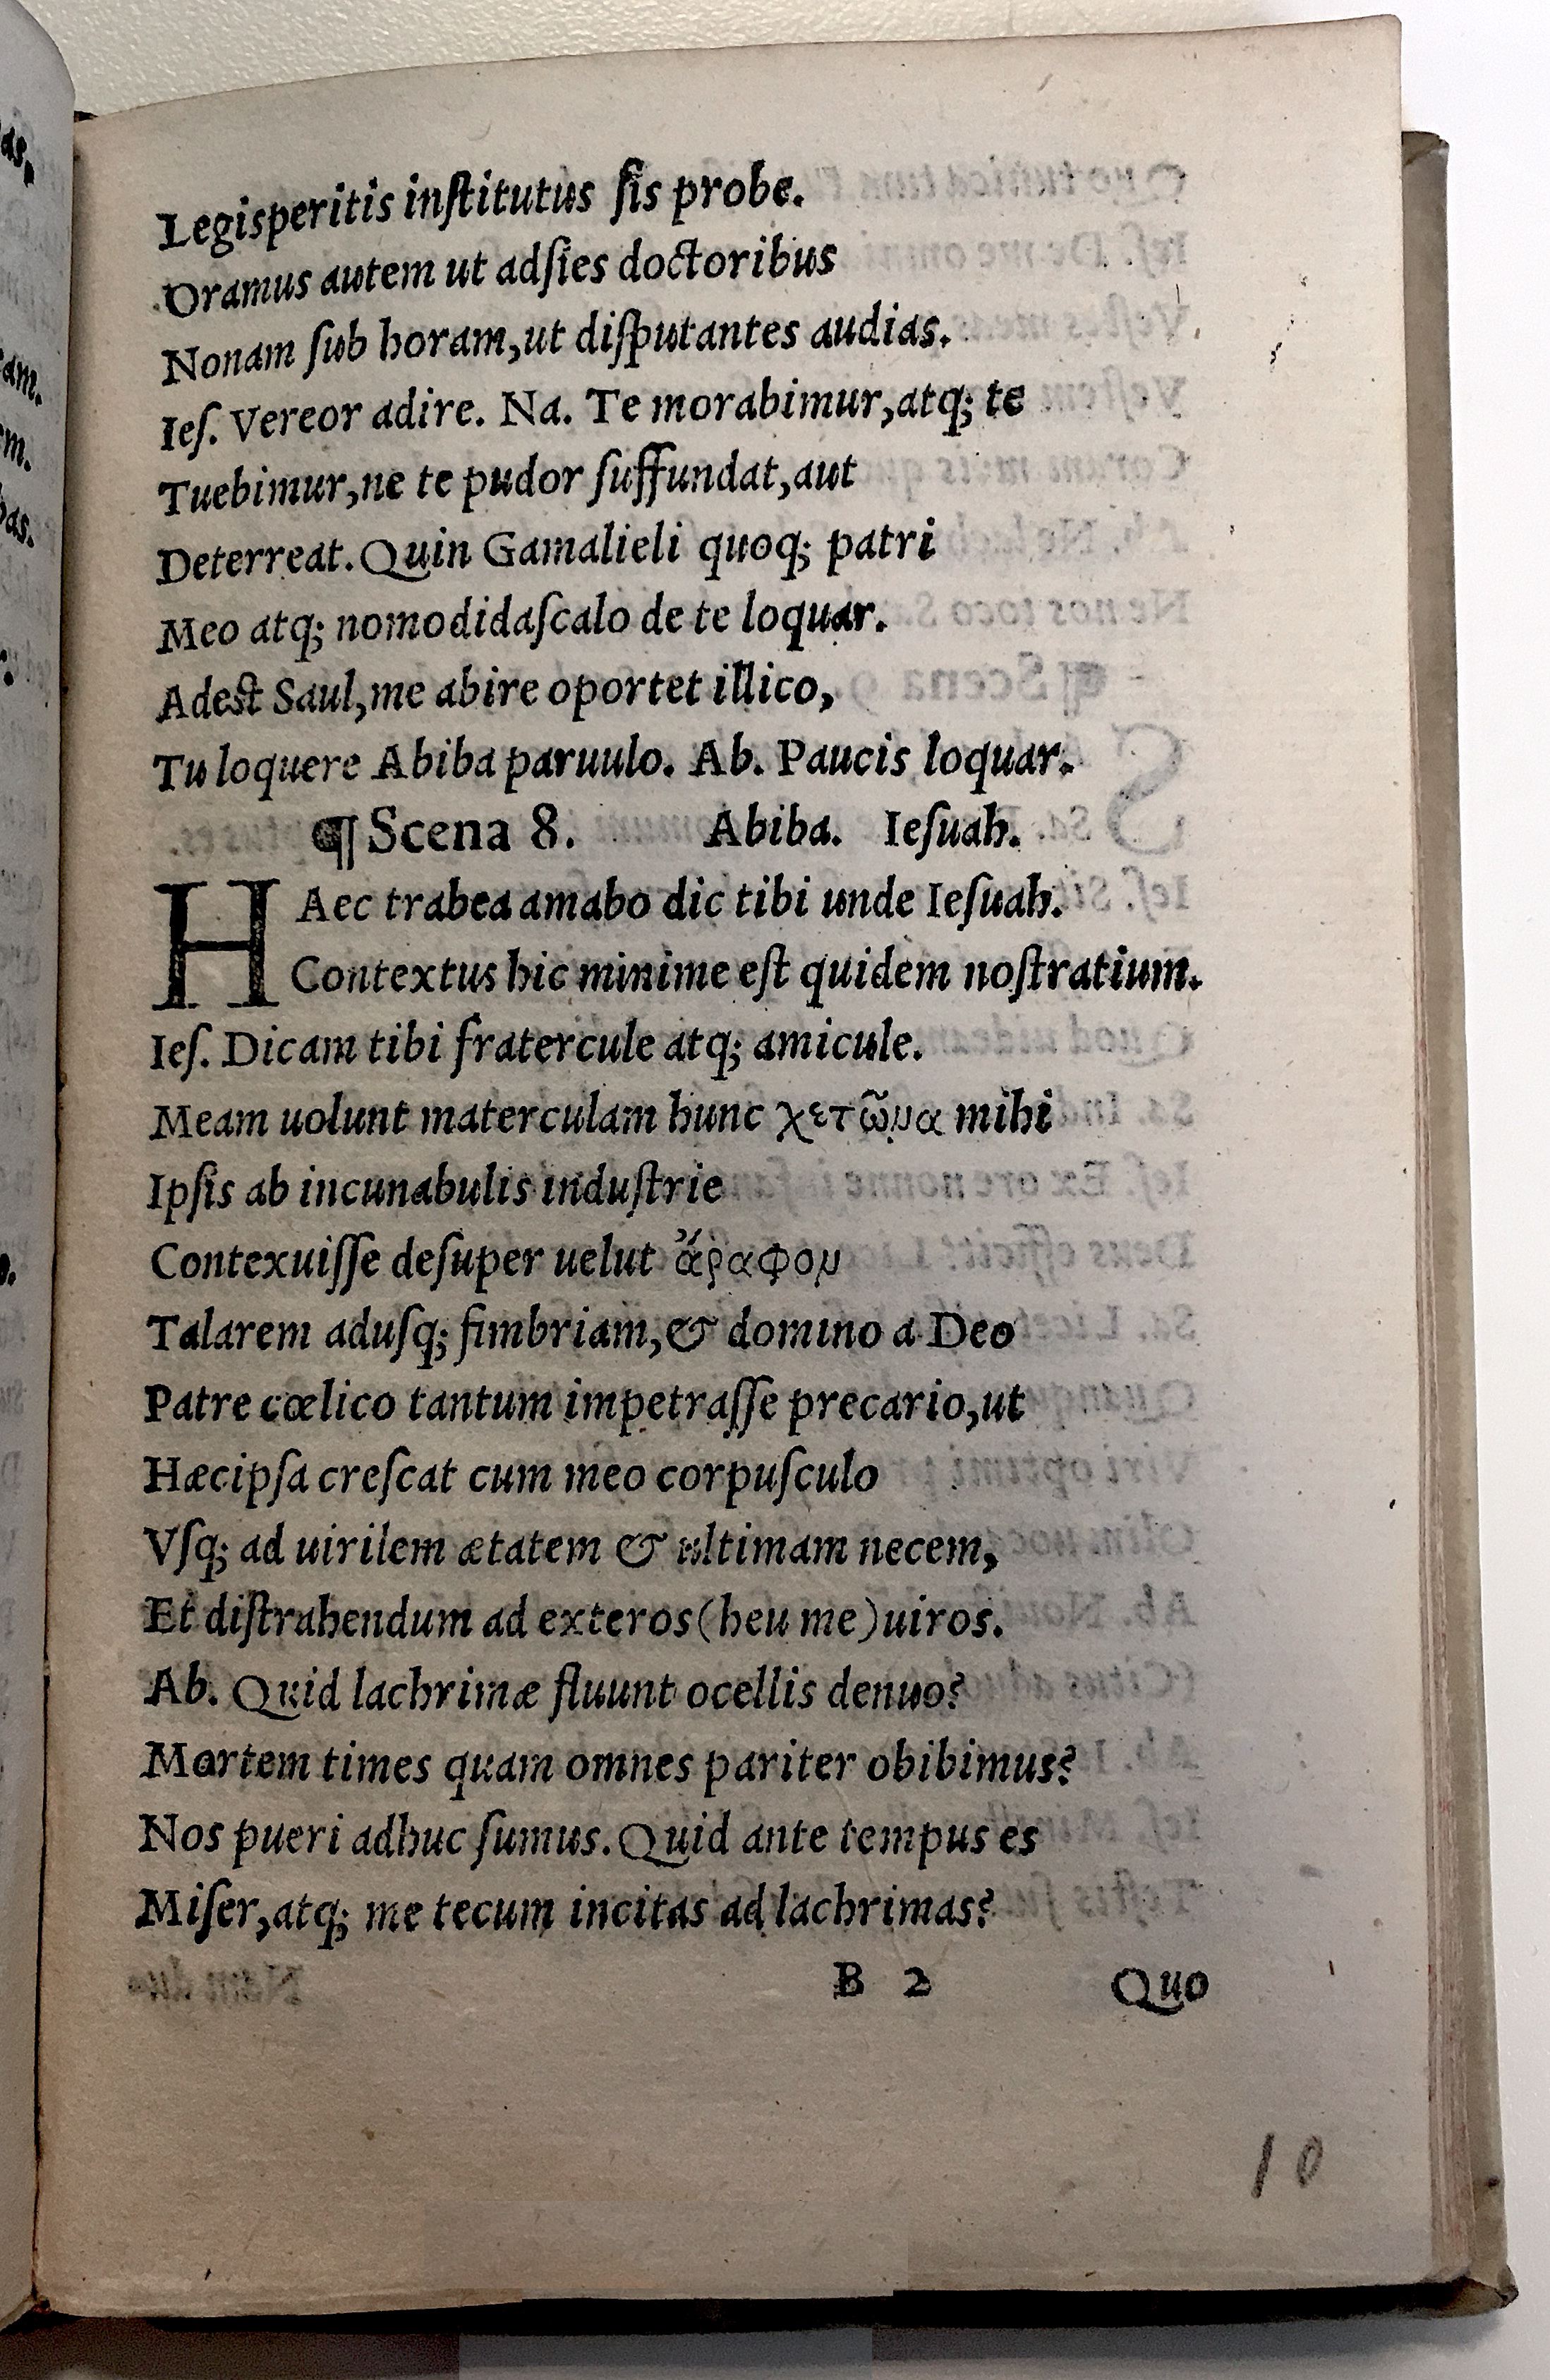 Legisperitis inſtitutus ſis probe.
Oramus autem ut adſies doctoribus
Nonam ſub horam,ut diſputantes audias.
Ieſ. Vereor adire. Na. Te morabimur,atq; te
Tuebimur,ne te pudor ſuffundat,aut
Deterreat. Quin Gamalieli quoq; patri
Meo atq; nomodidaſcalo de te loquar.
Adeſt Saul,me abire oportet illico,
Tu loquere Abiba paruulo. Ab. Paucis loquar.
¶ Scena 8. Abiba. Ieſuah.
HAec trabea amabo dic tibi unde Ieſuah.
Contextus hic minime eſt quidem noſtratium.
Ieſ. Dicam tibi fratercule atq; amicule.
Meam uolunt materculam hunc χετῶνα mihi
Ipſis ab incunabulis induſtrie
Contexuiſſe deſuper uelut ἄραφον
Talarem aduſq; fimbriam,& domino a Deo
Patre cœlico tantum impetraſſe precario,ut
Hæcipſa creſcat cum meo corpuſculo
Vſq; ad uirilem ætatem & ultimam necem,
Et diſtrahendum ad exteros(heu me)uiros.
Ab. Quid lachrimæ fluunt ocellis denuo?
Mortem times quam omnes pariter obibimus?
Nos pueri adhuc ſumus. Quid ante tempus es
Miſer,atq; me tecum incitas ad lachrimas?
B 2 Quo
10